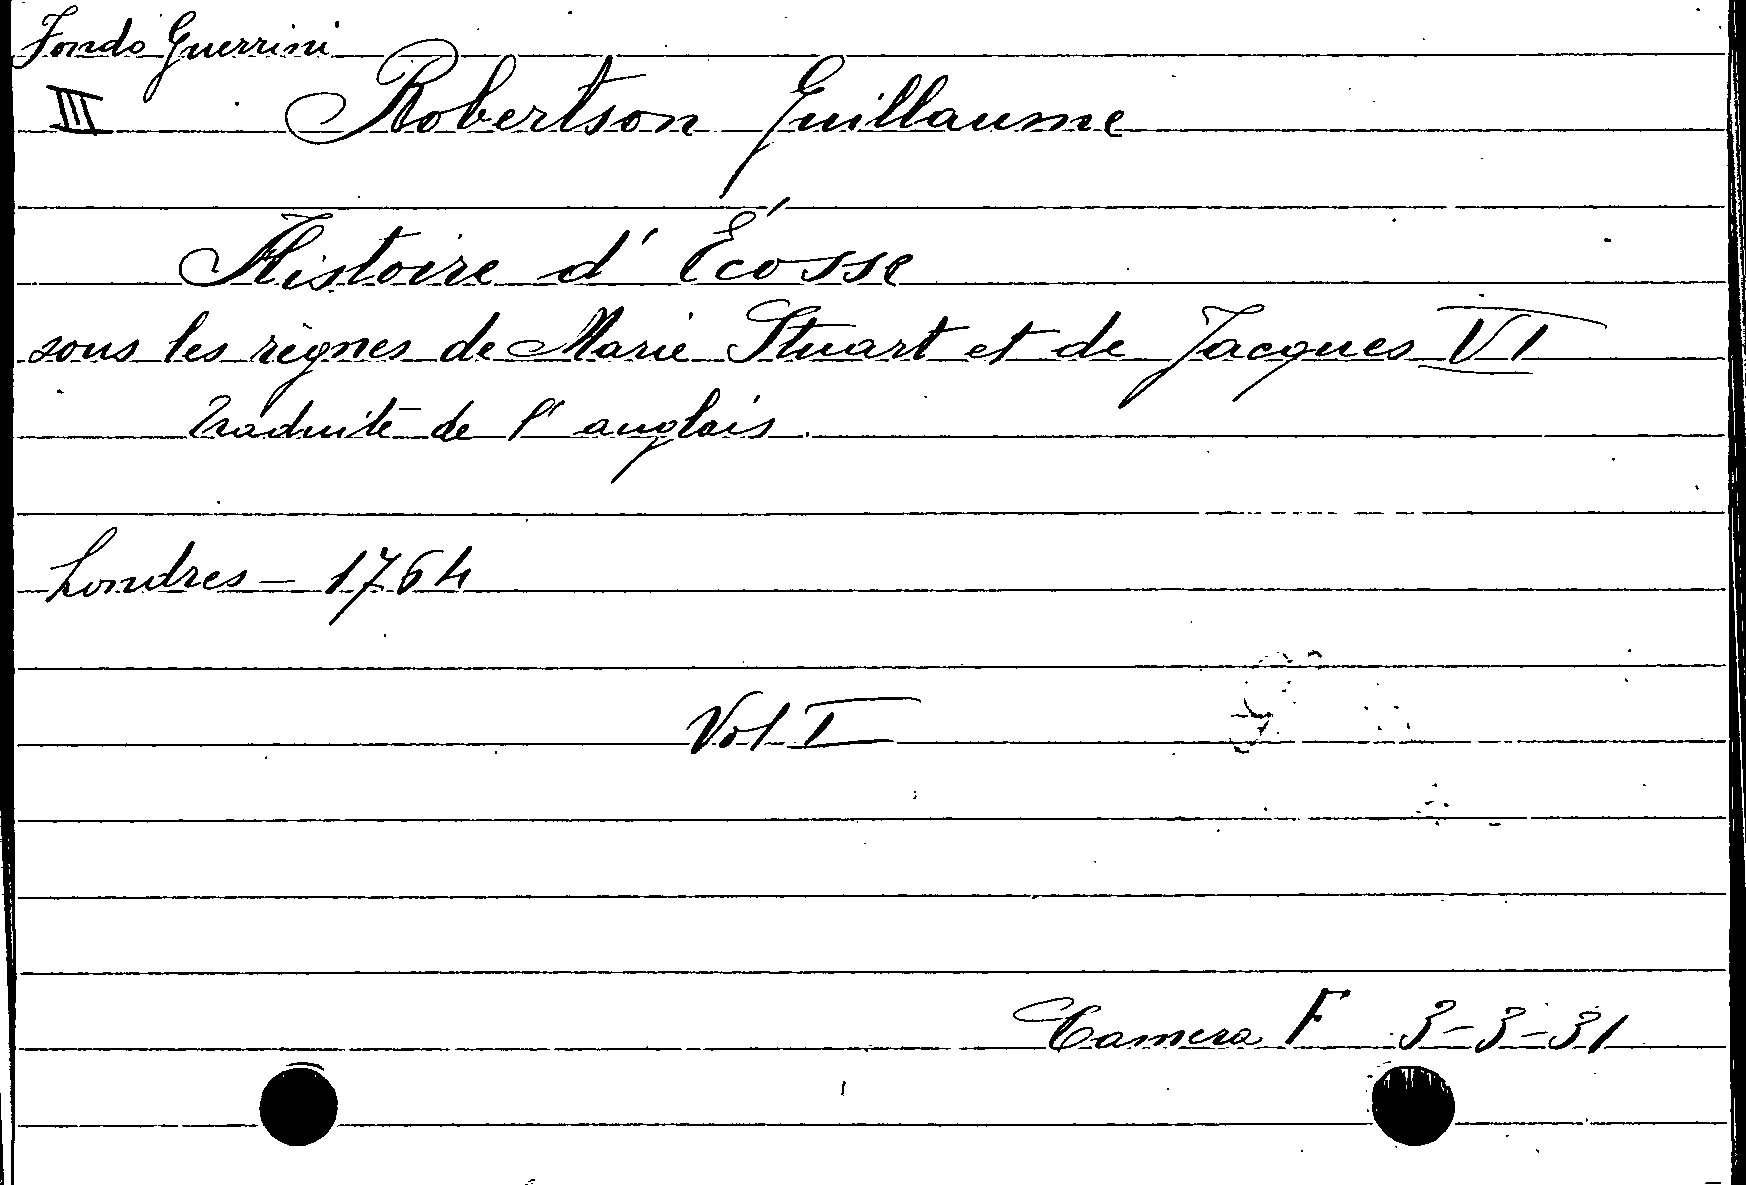 Fondo Guerrini
III Robertson Guillaume
Histoire d'Écosse
sous les règnes de Marie Stuart et de Jacques VI
traduite de l'anglais.
Londres - 1764
Vol I
Camera F 3-3-31